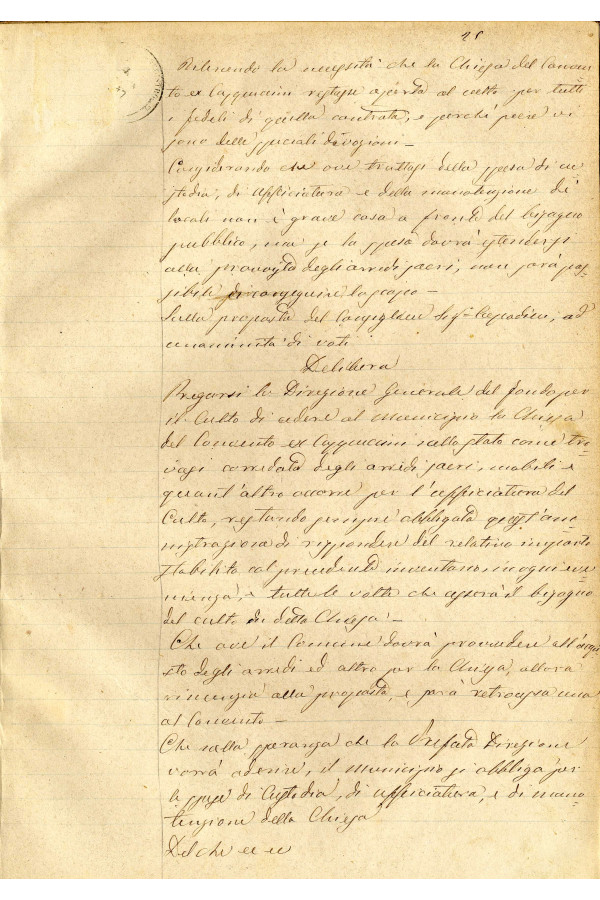 Ritenendo la necessità che la Chiesa del Conven=
to ex Cappuccini restasse aperta al culto per tutti
i fedeli di quella contrada, e perché pure vi
sono delle speciali divozioni –
Considerando che ove trattasi della spesa di cu
stodia, di ufficiatura e della manutenzione dei
locali non è grave cosa a fronte del bisogno
pubblico, ma se la spesa dovrà estendersi
alla provvista degli arredi sacri, non sarà pos=
sibile di conseguire lo scopo –
Sulla proposta del Consigliere Sigr ad
unanimità di voti
Delibera
Pregarsi la Direzione Generale del fondo per
il Culto di cedere al Municipio la Chiesa
del Convento ex Cappuccini nello stato come tro=
vasi corredata degli arredi sacri, mobili e
quant'altro occorre per l'ufficiatura del
Culto, restando sempre obbligata quest'am=
ministrazione di rispondere del relativo
stabilito col precedente inventario, in ogni eve
nienza, e tutte le volte che cesserà il bisogno
del culto in detta Chiesa –
Che ove il Comune dovrà provvedere all'acqui
sto degli arredi ed altro per la Chiesa, allora
rinunzia alla proposta, e sarà retrocessa
al Convento –
Che nella speranza che la Prefata Direzione
vorrà aderire, il Municipio si obbliga per
le spese di Custodia, di ufficiatura, e di manu
tenzione della Chiesa
Del che